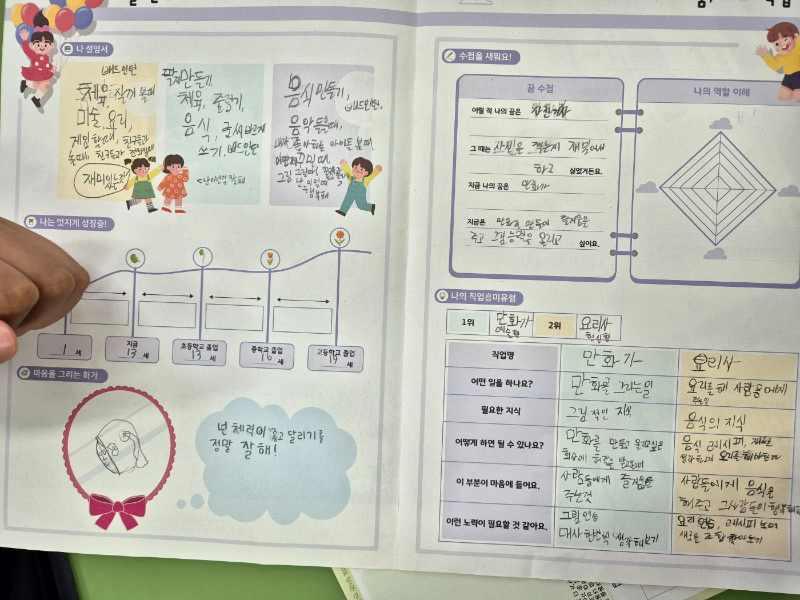 나 설명서
배드민턴
체육, 잘할 때
미술, 요리,
재밌는것
만들기,
체육, 줄넘기,
음식, 글씨 바르게
쓰기, 배드민턴
음식 만들기,
배드민턴,
음악 들을때,
그림 그릴때,
행복해
나는 멋지게 성장중!
1 세
지금
13 세
초등학교 졸업
13 세
중학교 졸업
16 세
고등학교 졸업
19 세
마음을 그리는 화가
넌 체력이 좋고 달리기를
정말 잘해!
수첩을 채워요!
꿈 수첩
어릴 적 나의 꿈은
그 때는 사진을 찍는게 재밌어서
하고 싶었거든요.
지금 나의 꿈은 만화가
지금은 만화로 만들어 즐거움을
주고 그림 능력을 올리고 싶어요.
나의 역할 이해
나의 직업흥미유형
1위 만화가
예술형
2위 요리사
현실형
직업명 만화가 요리사
어떤 일을 하나요? 만화를 그리는 일 요리를 해 사람들에게
주는일
필요한 지식 그림 적인 지식 음식의 지식
어떻게 하면 될 수 있나요? 만화를 만들고 음식 레시피,
이 부분이 마음에 들어요. 사람들에게 즐거움을 사람들에게 음식을
주는것 해주고 그사람들이
이런 노력이 필요할 것 같아요. 그림 연습 요리 연습, 레시피
대사 한번씩 생각해보기 새로운 조합 찾아보기